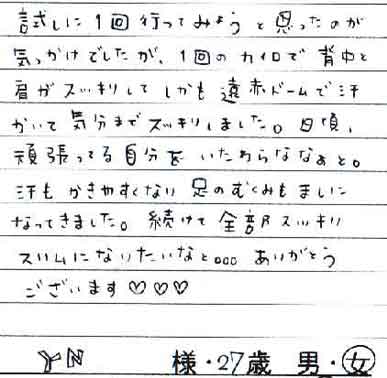 試しに1回行ってみようと思ったのが
気っかけでしたが、1回のカイロで背中と
肩がスッキリしてしかも遠赤ドームで汗
かいて気分までスッキリしました。日頃、
頑張ってる自分をいたわらななぁと。
汗もかきやすくなり足のむくみもましに
なってきました。続けて全部スッキリ
スリムになりたいなと。。。ありがとう
ございます♡♡♡
YN 様・27歳 男・女